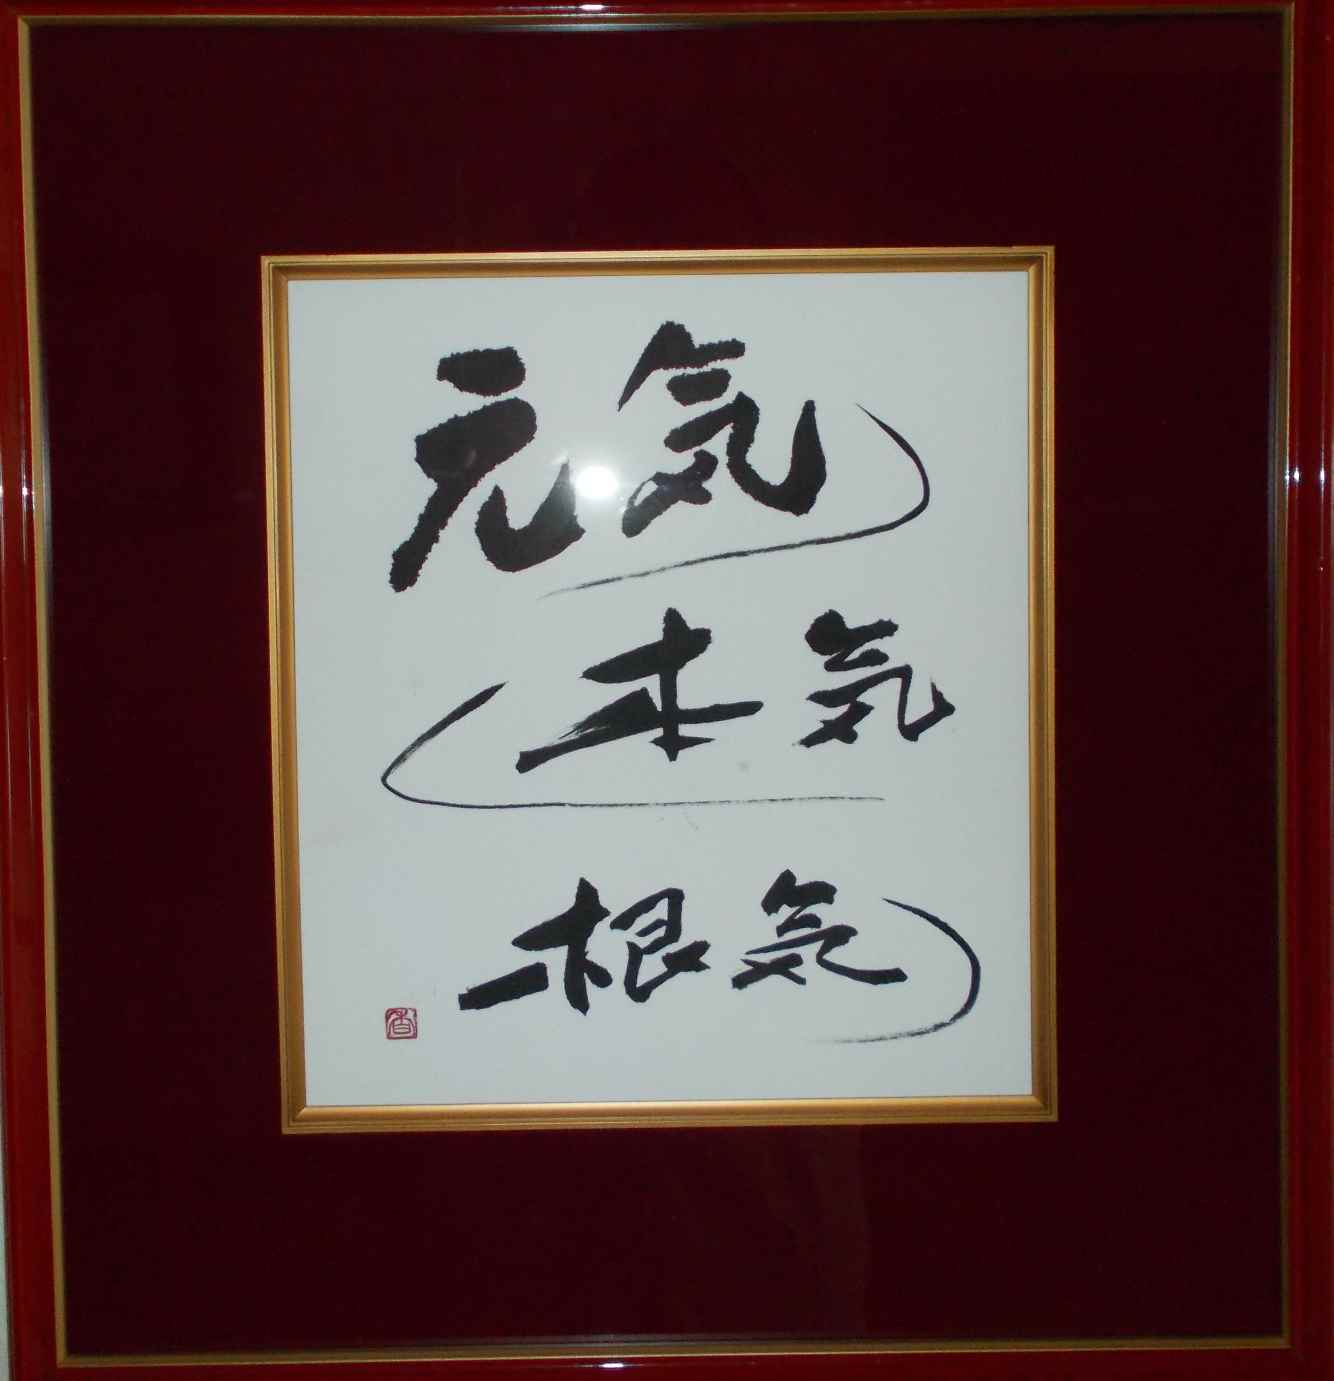 元気
本気
根気
香